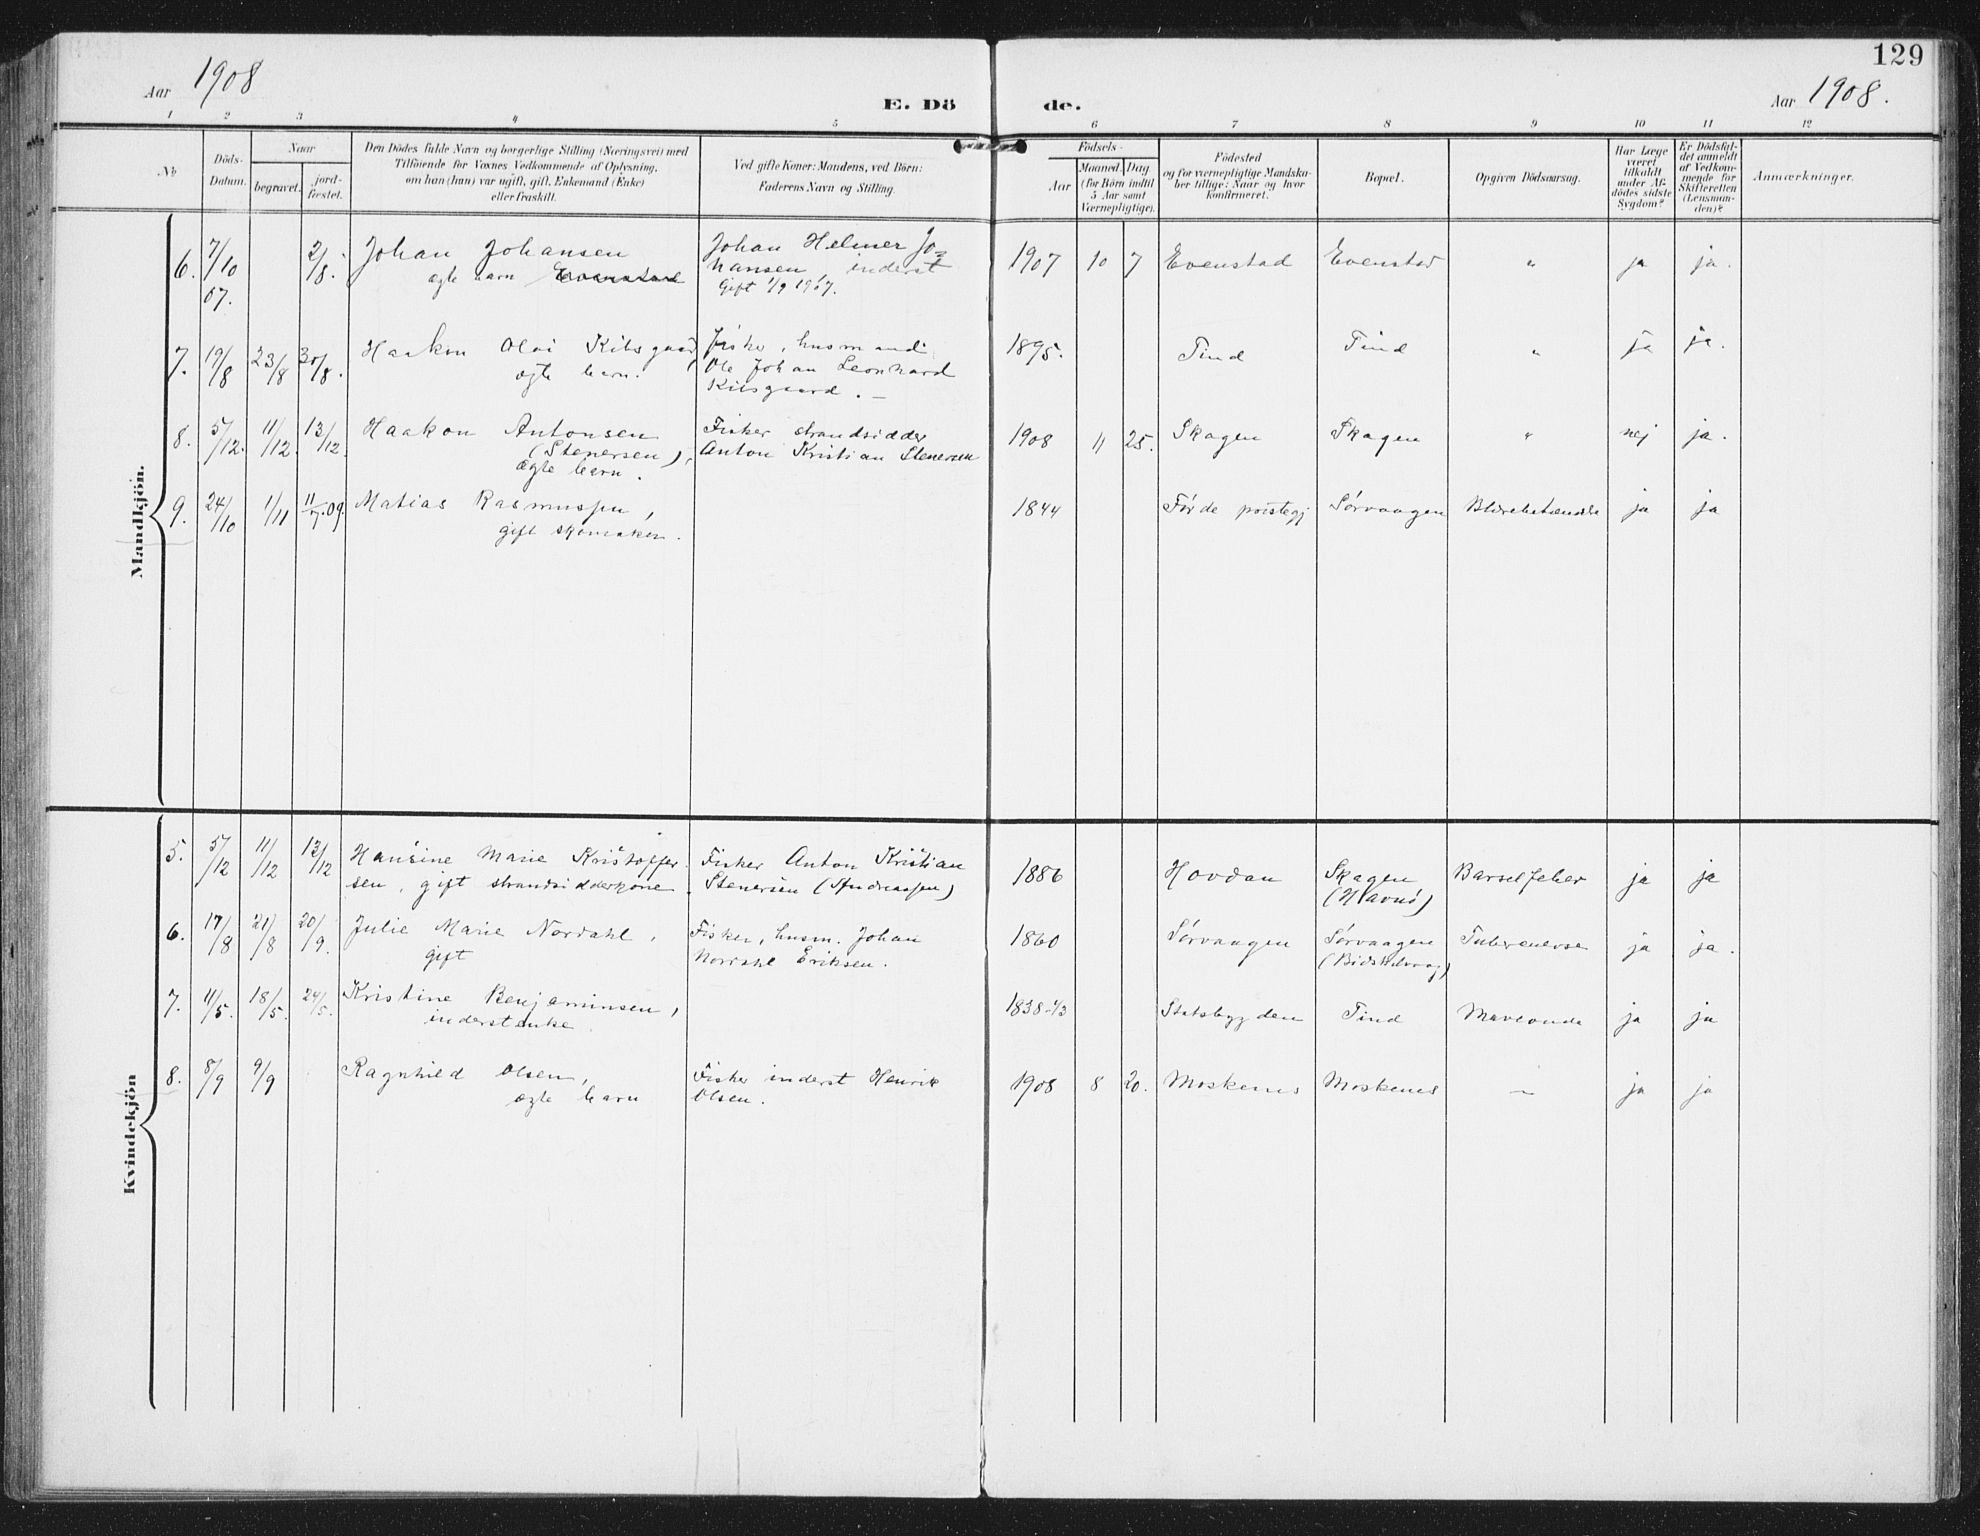 129
Aar 1908
E. Dö de.
Aar 1908.
1 2 3 4 5 6 7 8 9 10 11 12
No
Döds-
Datum.
Naar
begravet.
jord-
fæstet.
Den Dödes fulde Navn og borgerlige Stilling (Næringsvei) med
Tilföiende for Voxnes Vedkommende af Oplysning,
om han (hun) var ugift, gift, Enkemand (Enke)
eller fraskilt.
Ved gifte Koner: Mandens, ved Börn:
Faderens Navn og Stilling.
Födsels-
Aar
Maaned. Dag
(for Börn indtil
5 Aar samt
Værnepligtige).
Födested
og for værnepligtige Mandska-
ber tillige: Naar og hvor
konfirmeret.
Bopæl.
Opgiven Dödsaarsag.
Har Læge
været
tilkaldt
under Af-
dödes sidste
Sygdom?
Er Dödsfal-
det anmeldt
af Vedkom-
mende for
Skifteretten
(Lensman-
den)?
Anmærkninger.
Mandkjön.
6. 7/10 07. 2/8. Johan Johansen Johan Helmer Jo= 1907 10 7 Evenstad Evenstad " ja ja.
ægte barn Evenstad hansen, inderst
Gift 1/9 1907.
7. 19/8 23/8 30/8. Haakon Olai Kilsgaard, Fisker, husmand 1895. Tind Tind " ja ja.
ægte barn. Ole Johan Leonhard
Kilsgaard. —
8. 5/12. 11/12. 13/12. Haakon Antonsen Fisker strandsidder 1908 11 25. Skagen Skagen " nej ja.
(Stenersen), Anton Kristian Stenersen
ægte barn.
9. 24/10 1/11 11/7.09. Matias Rasmussen, 1844 Førde præstegj Sørvaagen Blærebetændelse ja ja
gift skomaker.
Kvindekjön
5. 5/12 11/12 13/12 Hansine Marie Kristoffer Fisker Anton Kristian 1886 Hovdan Skagen Barselfeber ja ja
sen, gift strandsidderkone. Stenersen (Andreassen) (Havnö)
6. 17/8 21/8 20/9. Julie Marie Nordahl, Fisker, husm. Johan 1860 Sørvaagen Sørvaagen Tuberculose ja ja.
gift Nordahl Eriksen.
7. 11/5. 18/5. 24/5. Kristine Benjaminsen, 1838 Statsbygden Tind Maveonde ja ja
inderstenke.
8. 8/9 9/9 Ragnhild Olsen, Fisker inderst Henrik 1908 8 20. Moskenes Moskenes — ja ja
ægte barn Olsen.